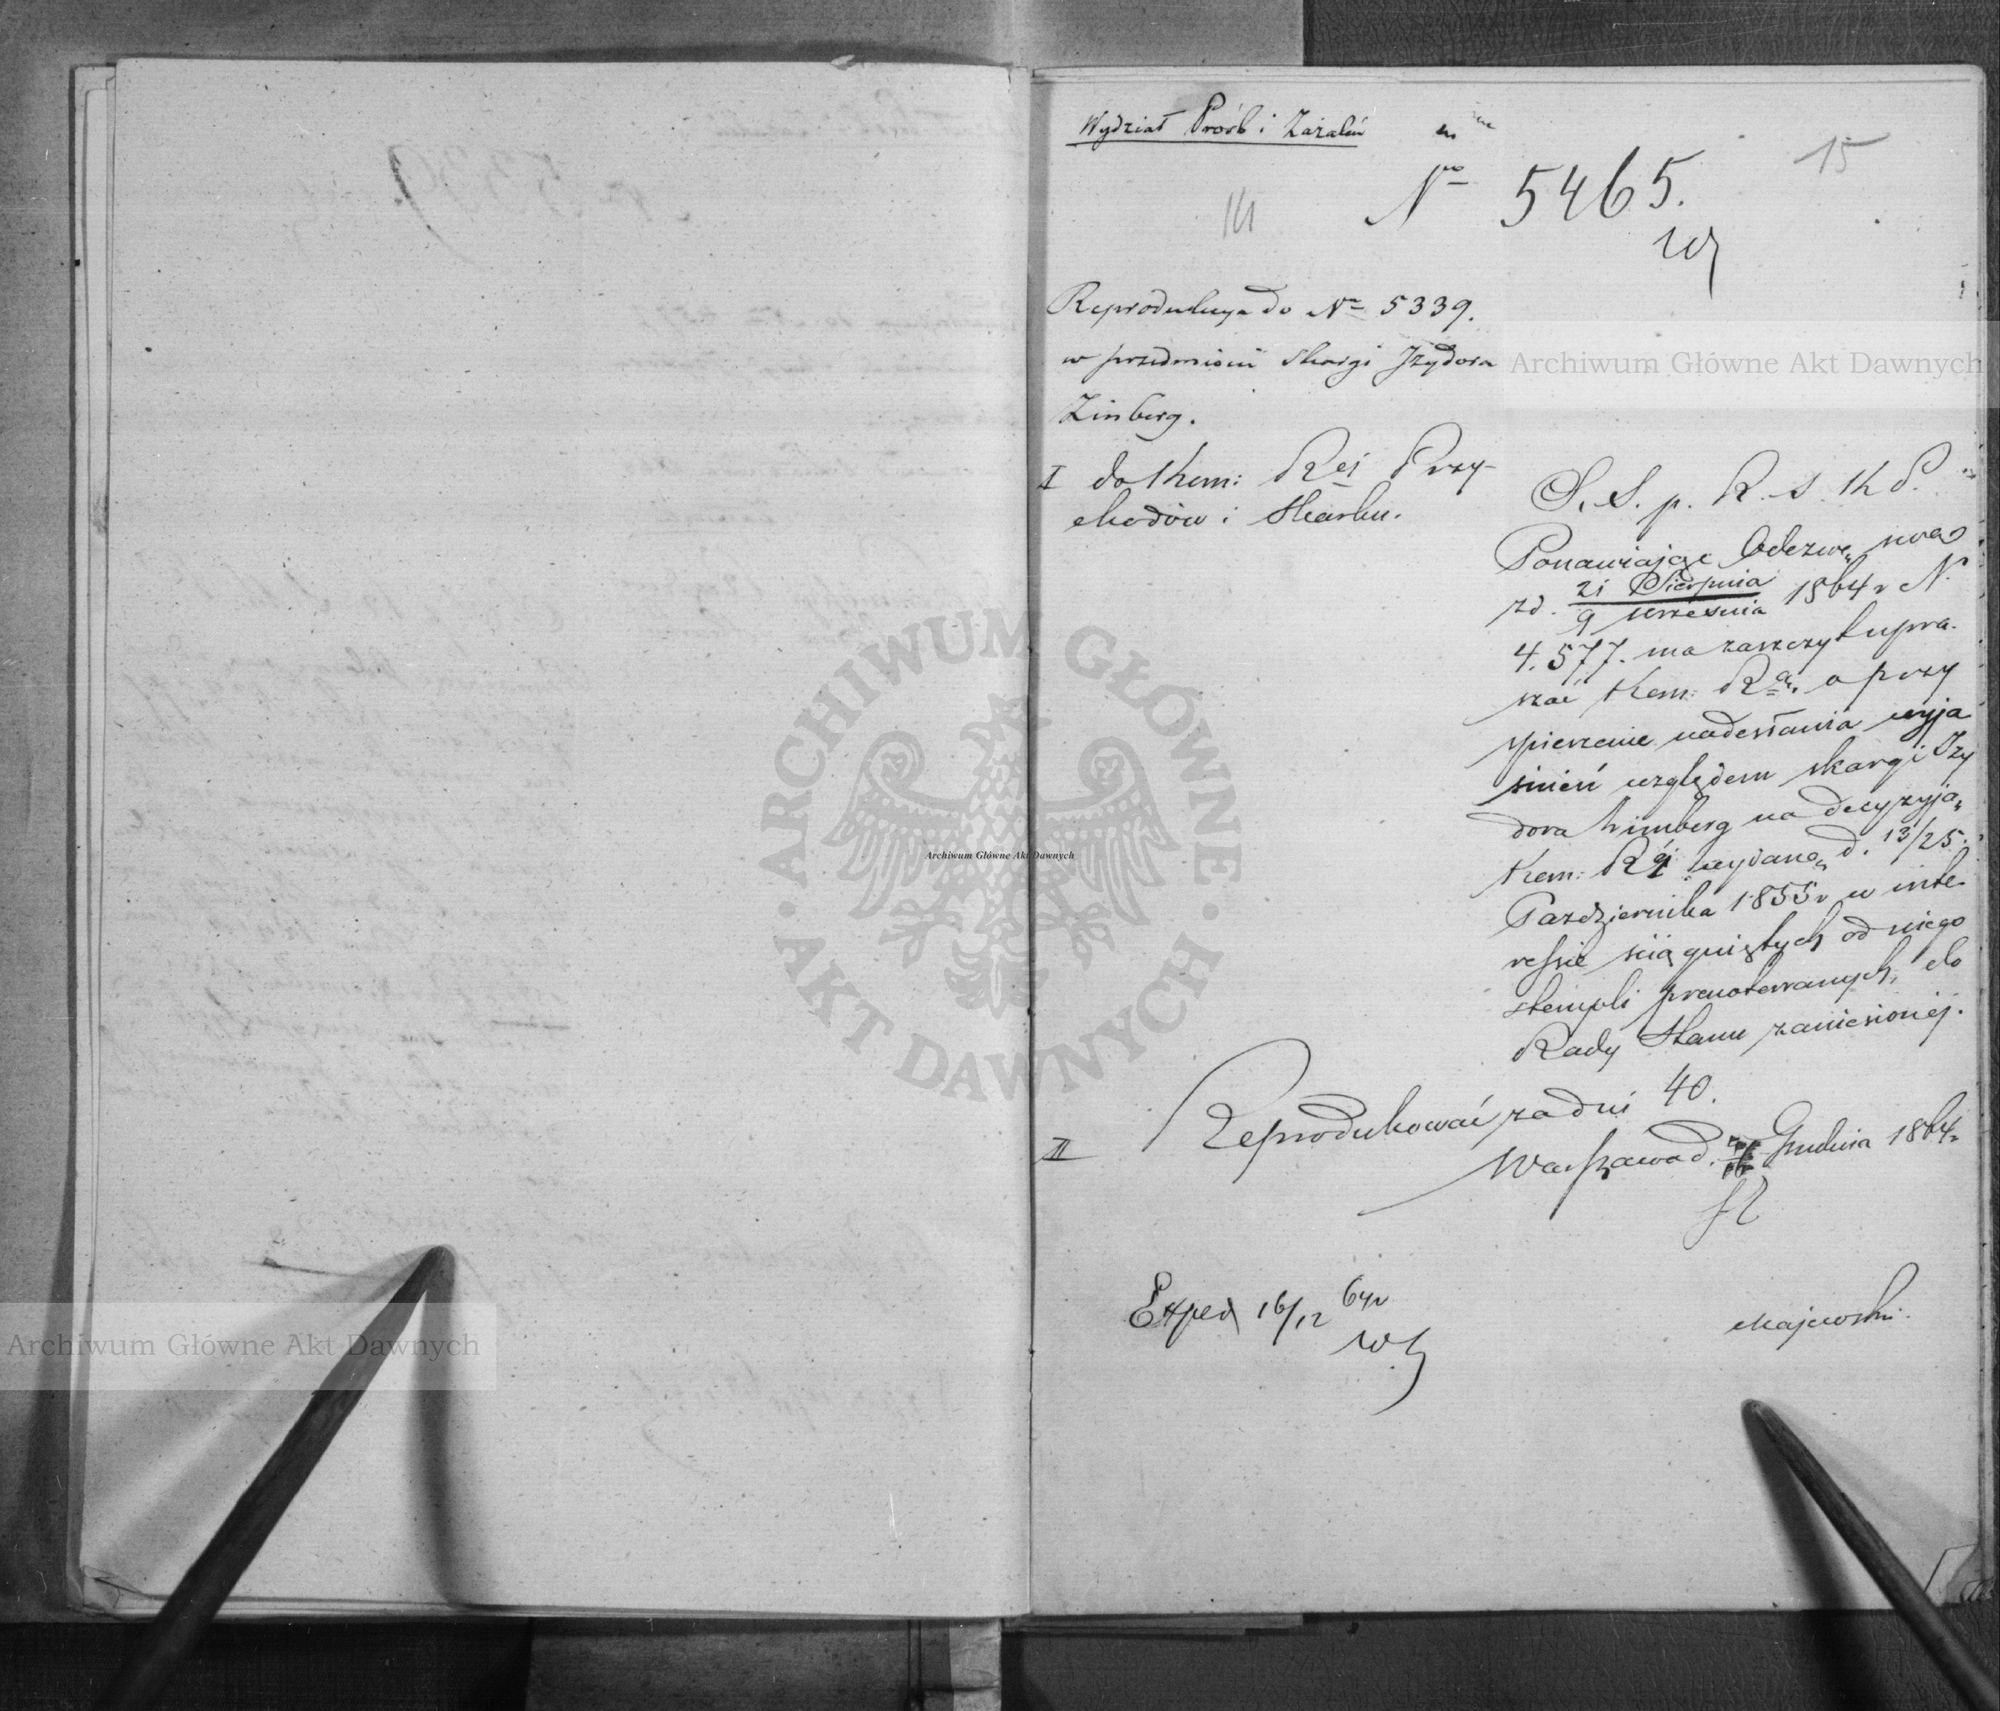 Wydział Próśb i Zażaleń
15
14
No 5465.
Reprodukcya do No 5339.
w przedmiocie skargi Izydora
Zimberg.
I do Kom: Rej Przy-
chodów i Skarbu.
S. S. p. R. s. K P.
Ponawiając Odezwę swą
z d. 21 Sierpnia
9 Września 1864 r N.
4,577. ma zaszczyt upra-
szać Kom: Rą. o przy
spieszenie nadesłania wyja
śnień względem skargi Izy
dora Zimberg na decyzyją,
Kom: Rej wydaną d. 13/25.
Października 1855 r w inte-
ressie ściągniętych od niego
stempli prenotowanych, do
Rady Stanu zaniesionej.
II Reprodukować za dni 40.
Warszawa d. Grudnia 1864 r
Exped 16/12 64 r
Majewski.
Archiwum Główne Akt Dawnych
Archiwum Główne Akt Dawnych
Archiwum Główne Akt Dawnych
ARCHIWUM GŁÓWNE AKT DAWNYCH